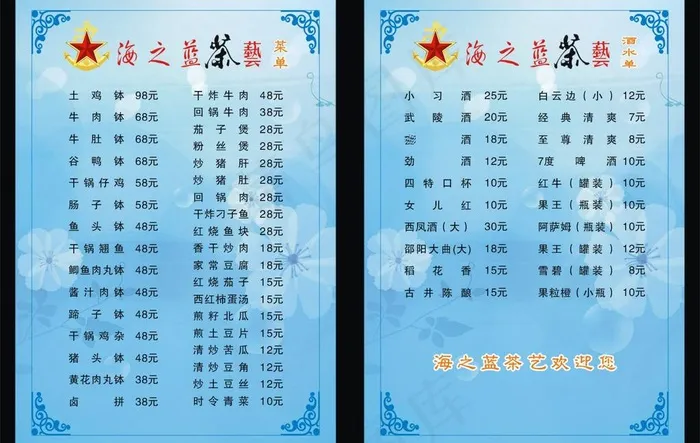 海之蓝茶藝 菜单
土鸡钵 98元
牛肉钵 68元
牛肚钵 68元
谷鸭钵 68元
干锅仔鸡 58元
肠子钵 58元
鱼头钵 48元
干锅翘鱼 48元
鲫鱼肉丸钵 48元
酱汁肉钵 48元
蹄子钵 48元
干锅鸡杂 48元
猪头钵 48元
黄花肉丸钵 38元
卤拼 38元
干炸牛肉 48元
回锅牛肉 38元
茄子煲 28元
粉丝煲 28元
炒猪肝 28元
炒猪肚 28元
回锅肉 28元
干炸刁子鱼 28元
红烧鱼块 28元
香干炒肉 18元
家常豆腐 18元
红烧茄子 15元
西红柿蛋汤 15元
煎籽北瓜 15元
煎土豆片 15元
清炒苦瓜 12元
清炒豆角 12元
炒土豆丝 12元
时令青菜 10元
海之蓝茶藝 酒水单
小习酒 25元
武陵酒 20元
酒 18元
劲酒 12元
四特口杯 10元
女儿红 10元
西凤酒(大) 30元
邵阳大曲(大) 18元
稻花香 15元
古井陈酿 15元
白云边(小) 12元
经典清爽 7元
至尊清爽 8元
7度啤酒 10元
红牛(罐装) 10元
果王(瓶装) 10元
阿萨姆(瓶装) 10元
果王(罐装) 12元
雪碧(罐装) 8元
果粒橙(小瓶) 10元
海之蓝茶艺欢迎您